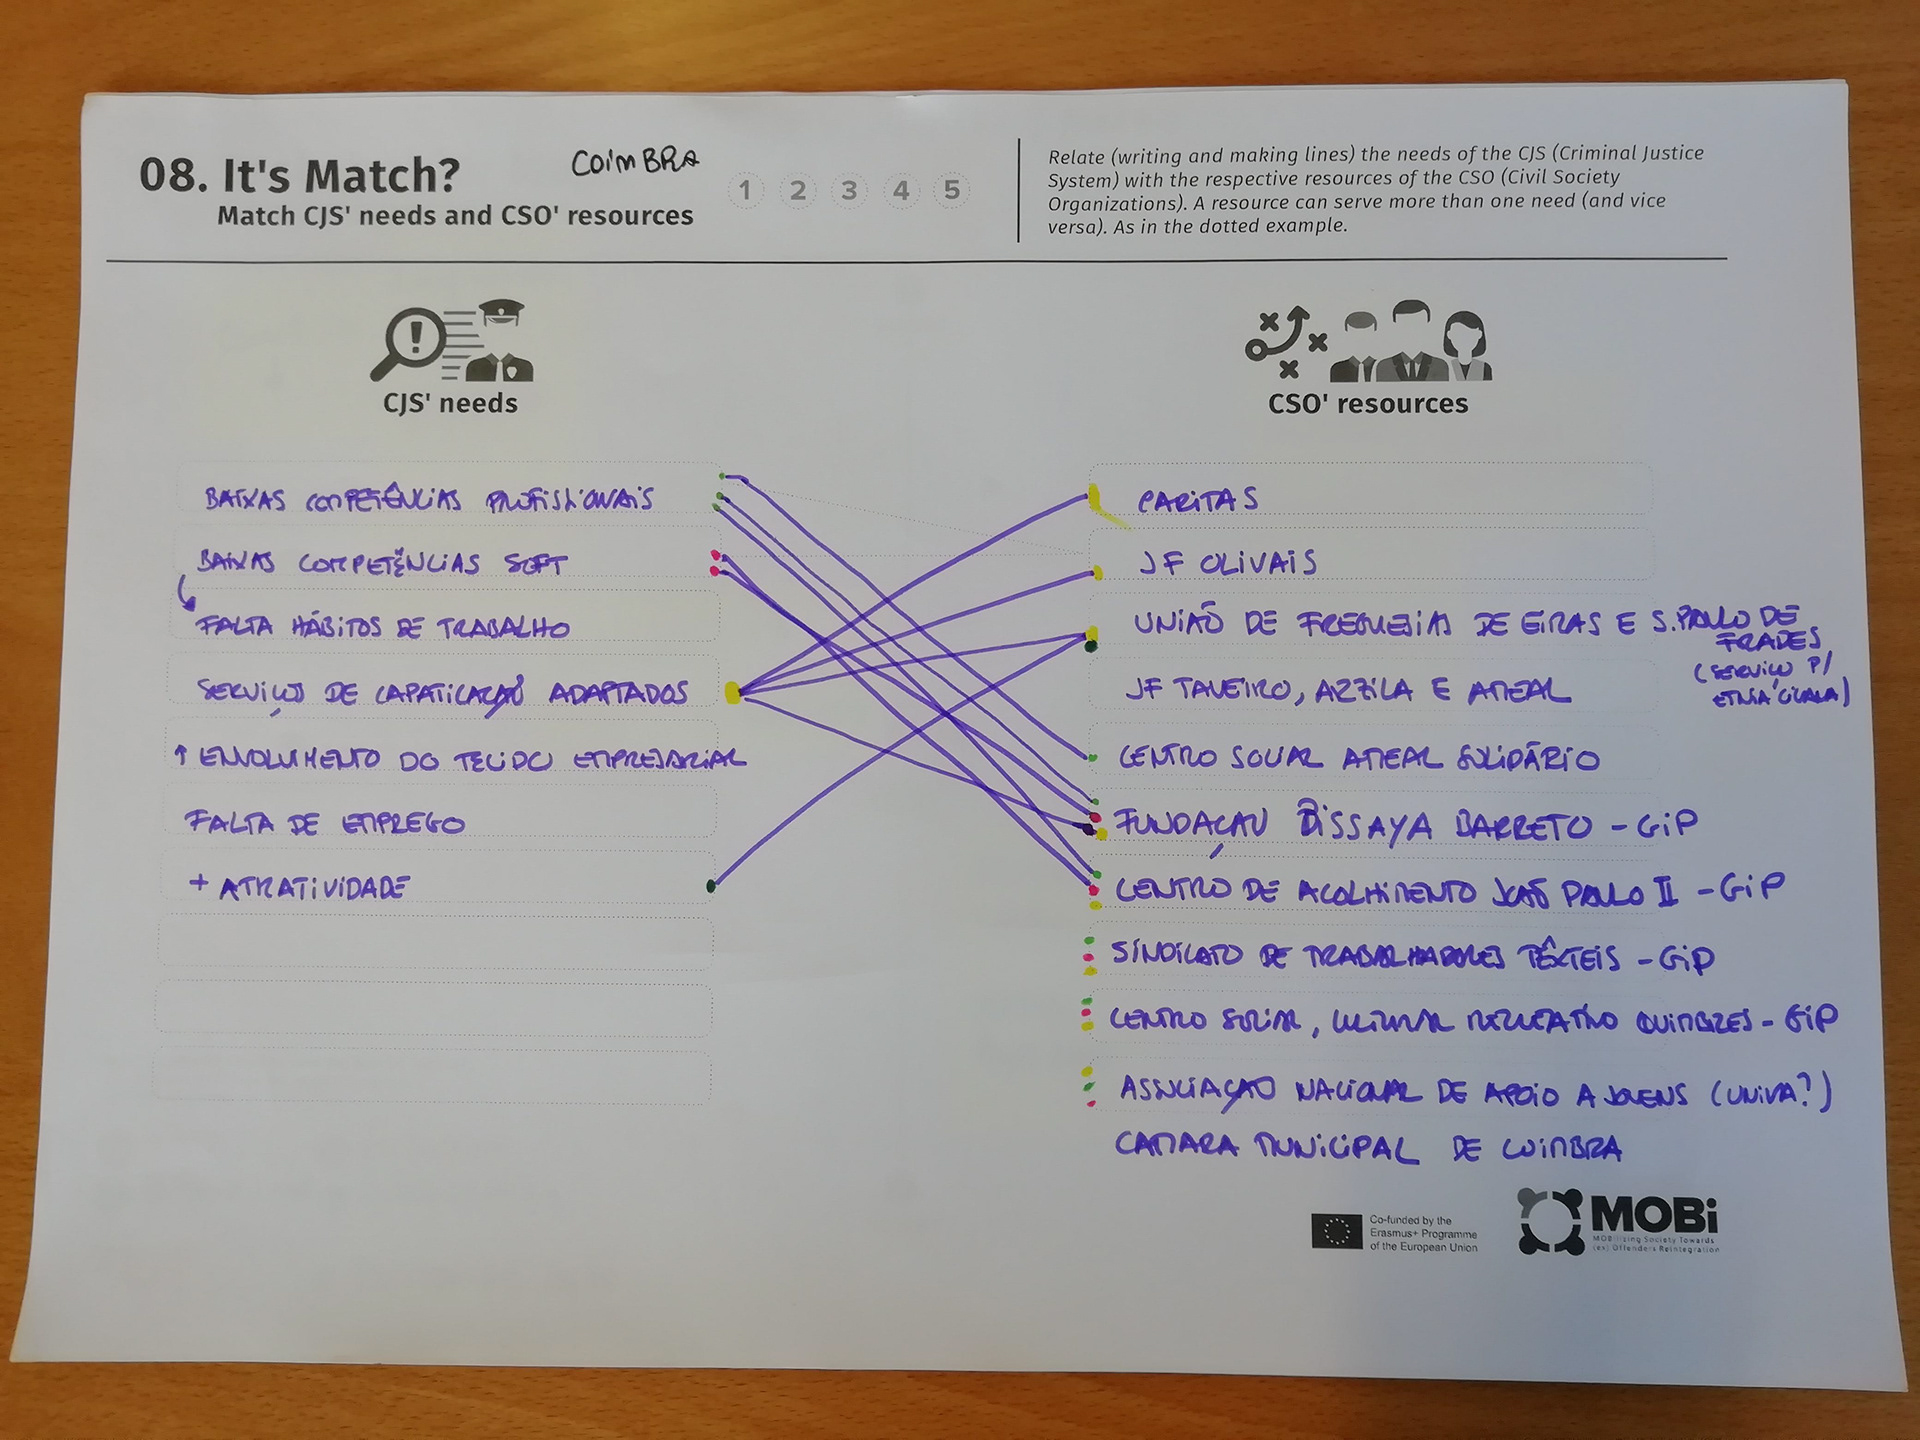 08. It's Match?
COIMBRA
Match CJS' needs and CSO' resources
1 2 3 4 5
Relate (writing and making lines) the needs of the CJS (Criminal Justice
System) with the respective resources of the CSO (Civil Society
Organizations). A resource can serve more than one need (and vice
versa). As in the dotted example.
CJS' needs
BAIXAS COMPETÊNCIAS PROFISSIONAIS
BAIXAS COMPETÊNCIAS SOFT
FALTA HÁBITOS DE TRABALHO
SERVIÇOS DE CAPACITAÇÃO ADAPTADOS
↑ ENVOLVIMENTO DO TECIDO EMPRESARIAL
FALTA DE EMPREGO
+ ATRATIVIDADE
CSO' resources
CARITAS
JF OLIVAIS
UNIÃO DE FREGUESIAS DE EIRAS E S. PAULO DE
FRADES
(SERVIÇO P/
ETNIA CIGANA)
JF TAVEIRO, AZZILA E AMEAL
CENTRO SOCIAL AMEAL SOLIDÁRIO
FUNDAÇÃO BISSAYA BARRETO - GIP
CENTRO DE ACOLHIMENTO JOÃO PAULO II - GIP
SINDICATO DE TRABALHADORES TÊXTEIS - GIP
CENTRO SOCIAL, CULTURAL RECREATIVO QUIMBRES - GIP
ASSOCIAÇÃO NACIONAL DE APOIO A JOVENS (UNIVA?)
CAMARA MUNICIPAL DE COIMBRA
Co-funded by the
Erasmus+ Programme
of the European Union
MOBi
MOBilizing Society Towards
(ex) Offenders Reintegration